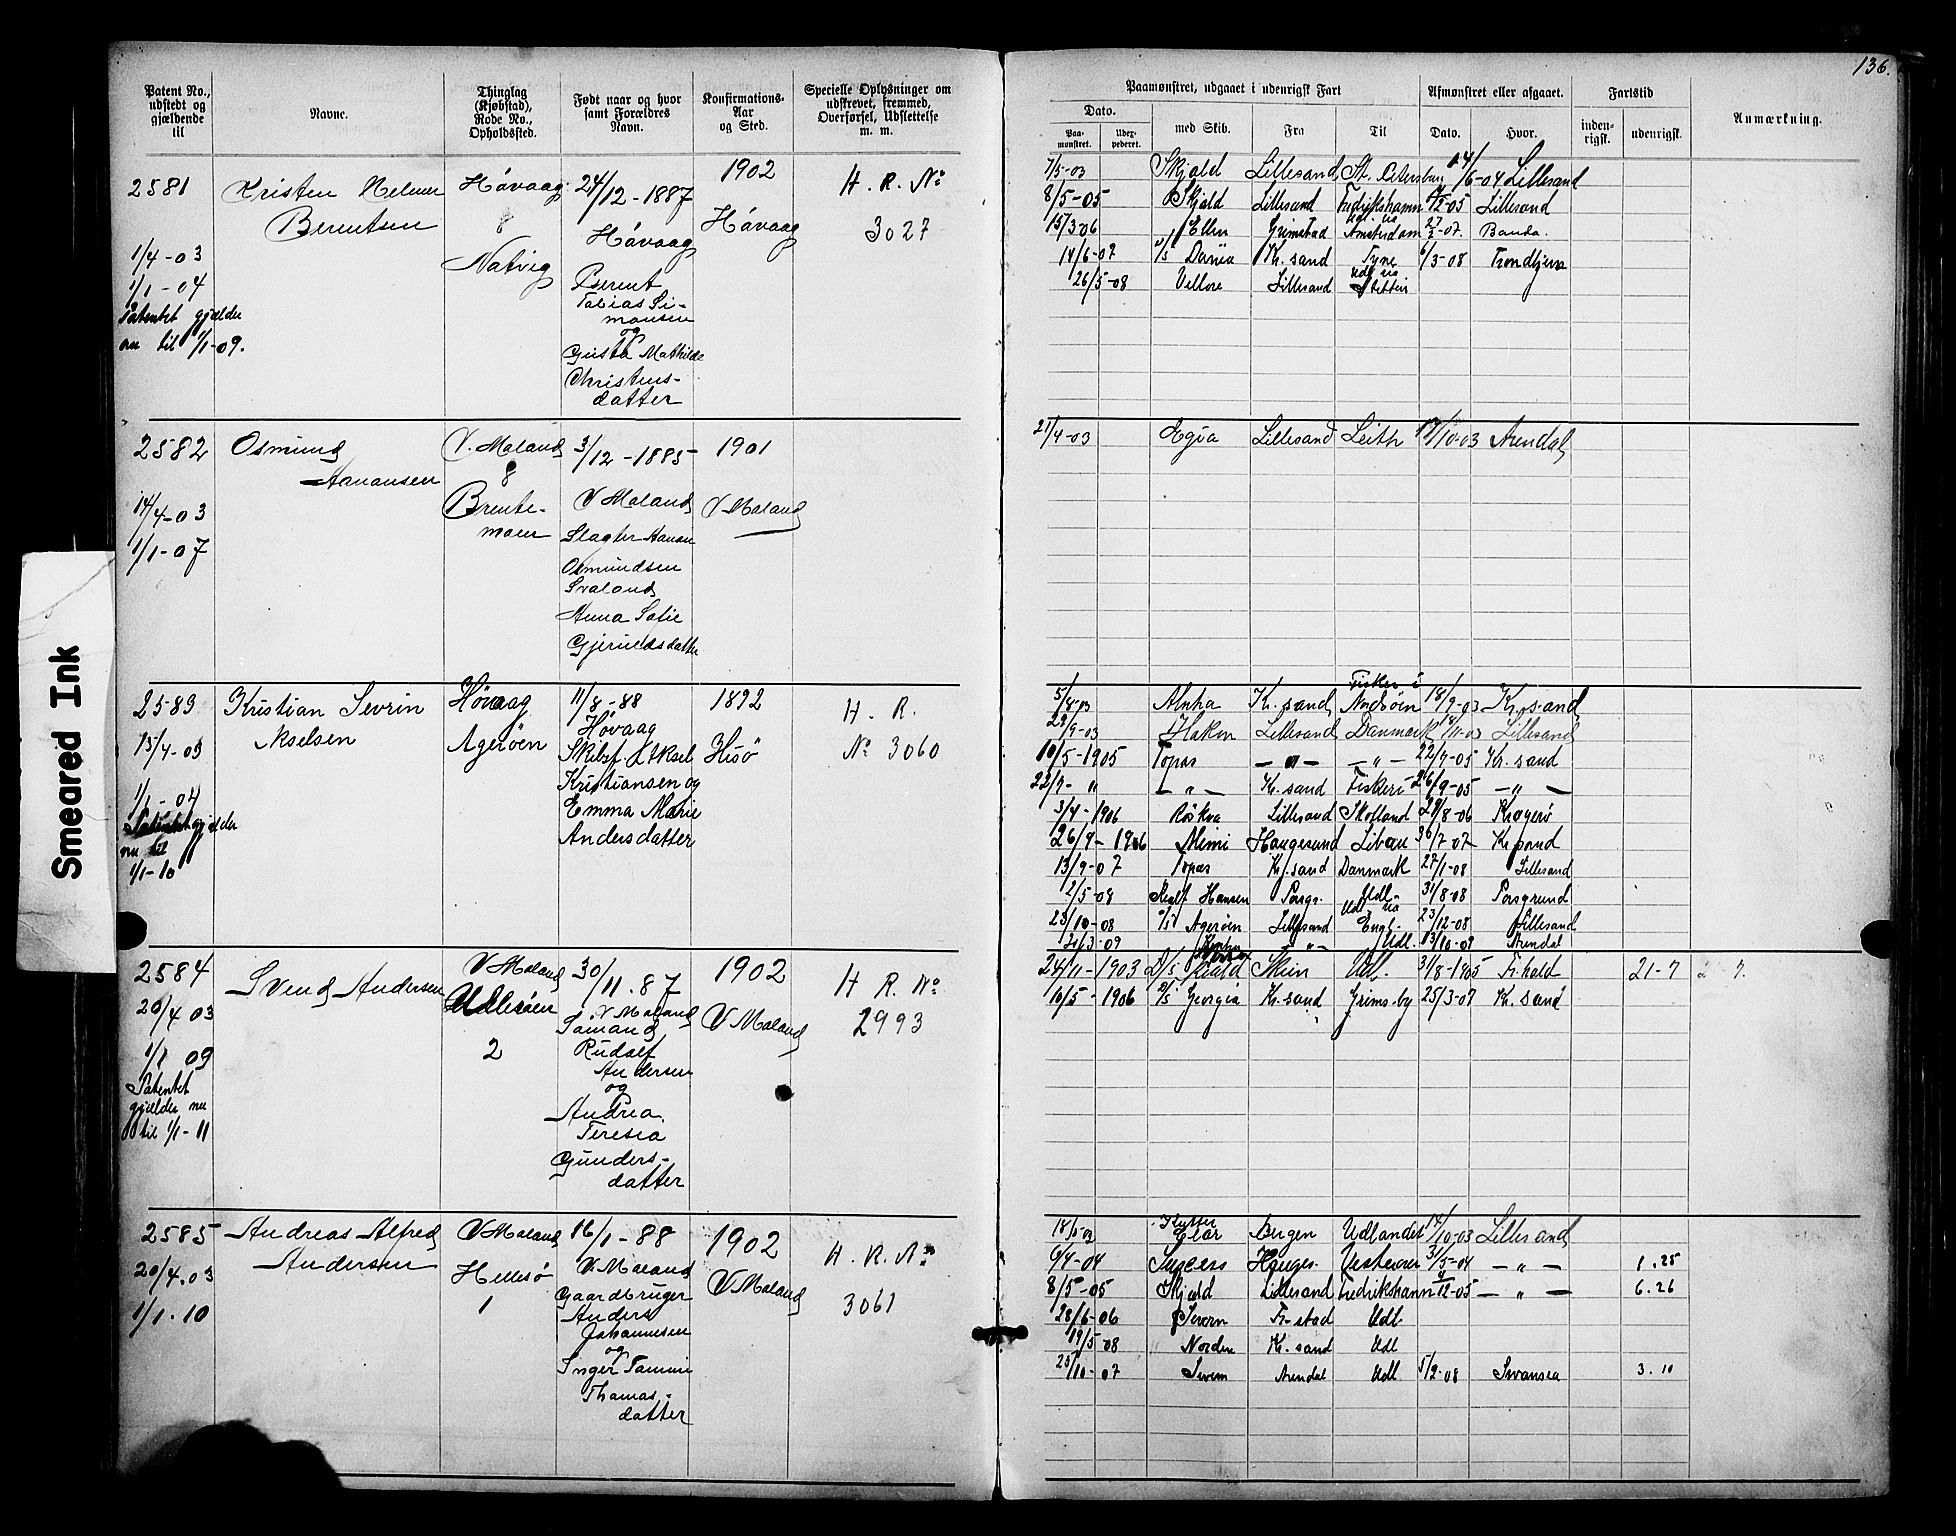 136.
Patent No., udstedt og gjældende til
Navne.
Thinglag (Kjøbstad), Rode No., Opholdssted.
Født naar og hvor samt Forældres Navn.
Konfirmations-Aar og Sted.
Specielle Oplysninger om udskrevet, fremmed, Overførsel, Udslettelse m. m.
Paamønstret, udgaaet i udenrigsk Fart
Afmønstret eller afgaaet.
Fartstid
Anmærkning.
Dato.
Paa-mønstret.
Uder-pederet.
med Skib.
Fra
Til
Dato.
Hvor.
inden-rigsk.
udenrigsk.
2581
Kristen Helmer
Berentsen
1/4-03
1/1-04
Patentet gjælder
nu til 1/1-09.
Høvaag
8
Natvig
24/12-1887
Høvaag
Berent
Tobias Si-
monsen
og
Gusta Mathilde
Christens-
datter
1902
Høvaag
H. R. No
3027
7/5-03 Skjold Lillesand St. Petersburg 14/6-04 Lillesand
8/5-05 Skjold Lillesand Fredrikshamn /12-05 Lillesand
15/3 06 Ellen Grimstad Amsterdam 27/2-07. Banda.
14/6-07 Dania Kr. sand Tyne 6/3-08 Trondhjem
26/5-08 Vellore Lillesand Stettin
2582
Osmund
Aanansen
14/4-03
1/1-07
V. Moland
8
Brente-
moen
3/12-1885
V Moland
Slagter Aanon
Osmundsen
Svaland
Anna Sofie
Gjeruldsdatter
1901
V Moland
21/4-03 Egia Lillesand Leith 17/10-03 Arendal
2583
Kristian Sevrin
Akselsen
15/4-03
1/1-04
Patentet gjælder
nu til
1/1-10
Høvaag
Agerøen
11/8-88
Høvaag
Skibsf. Aksel
Kristiansen og
Emma Marie
Andersdatter
1892
Hisö
H. R.
No 3060
Fisker i
5/4-03 Alpha Kr. sand Nordsøen 18/9-03 Kr. sand
29/9-03 Hakon Lillesand Danmark 18/11-03 Lillesand
10/5-1905 Topas — " — — " — 22/7-05 Kr. sand
22/7- " — " — Kr. sand Fiskeri 26/9-05 — " —
3/4-1906 Röskva Lillesand Skotland 29/8-06 Kragerø
26/9-1906 Mimi Haugesund Libau 30/7-07 Kr sand
13/9-07 Topas Kr. sand Danmark 27/1-08 Lillesand
2/5-08 Hansen Porsgr. Udl- 31/8-08 Porsgrund
23/10-08 Agerøen Lillesand Engl- 23/12-08 Lillesand
/3-09 — " — Udl. 13/10-09 Arendal
2584
Svend Andersen
20/4 03
1/1 09
Patentet
gjælder nu
til 1/1-11
V Moland
Udlesøen
2
30/11. 87
V Moland
Samand
Rudolf
Andersen
og
Andrea
Teresia
Gunders-
datter
1902
V Moland
H R. No
2993
24/11-1903 D/s Skald Skien Udl. 31/8-1905 Fr. hald 21-7
10/5-1906 D/s Georgia Kr. sand Grimsby 25/3-07 Kr. sand
2585
Andreas Alfred
Andersen
20/4.03
1/1.10
V Moland
Hellesö
1
16/1-88
V. Moland
Gaardbruger
Anders
Johannesen
og
Inger Tomine
Thomas-
datter
1902
V Moland
H. R. No
3061
18/5-03 Elar Bergen Udlandet 14/10-03 Lillesand
6/4-04 Success Hauges. Vesterver 31/5-04 — " — 1.25
8/5-05 Skjold Lillesand Fredrikshamn /12-05 — " — 6.26
28/6-06 Severn Fr. stad Udl
19/5-08 Norden Kr. sand Udl
25/10-07 Severn Arendal Udl 5/2-08 Swansea 3.10
Smeared Ink